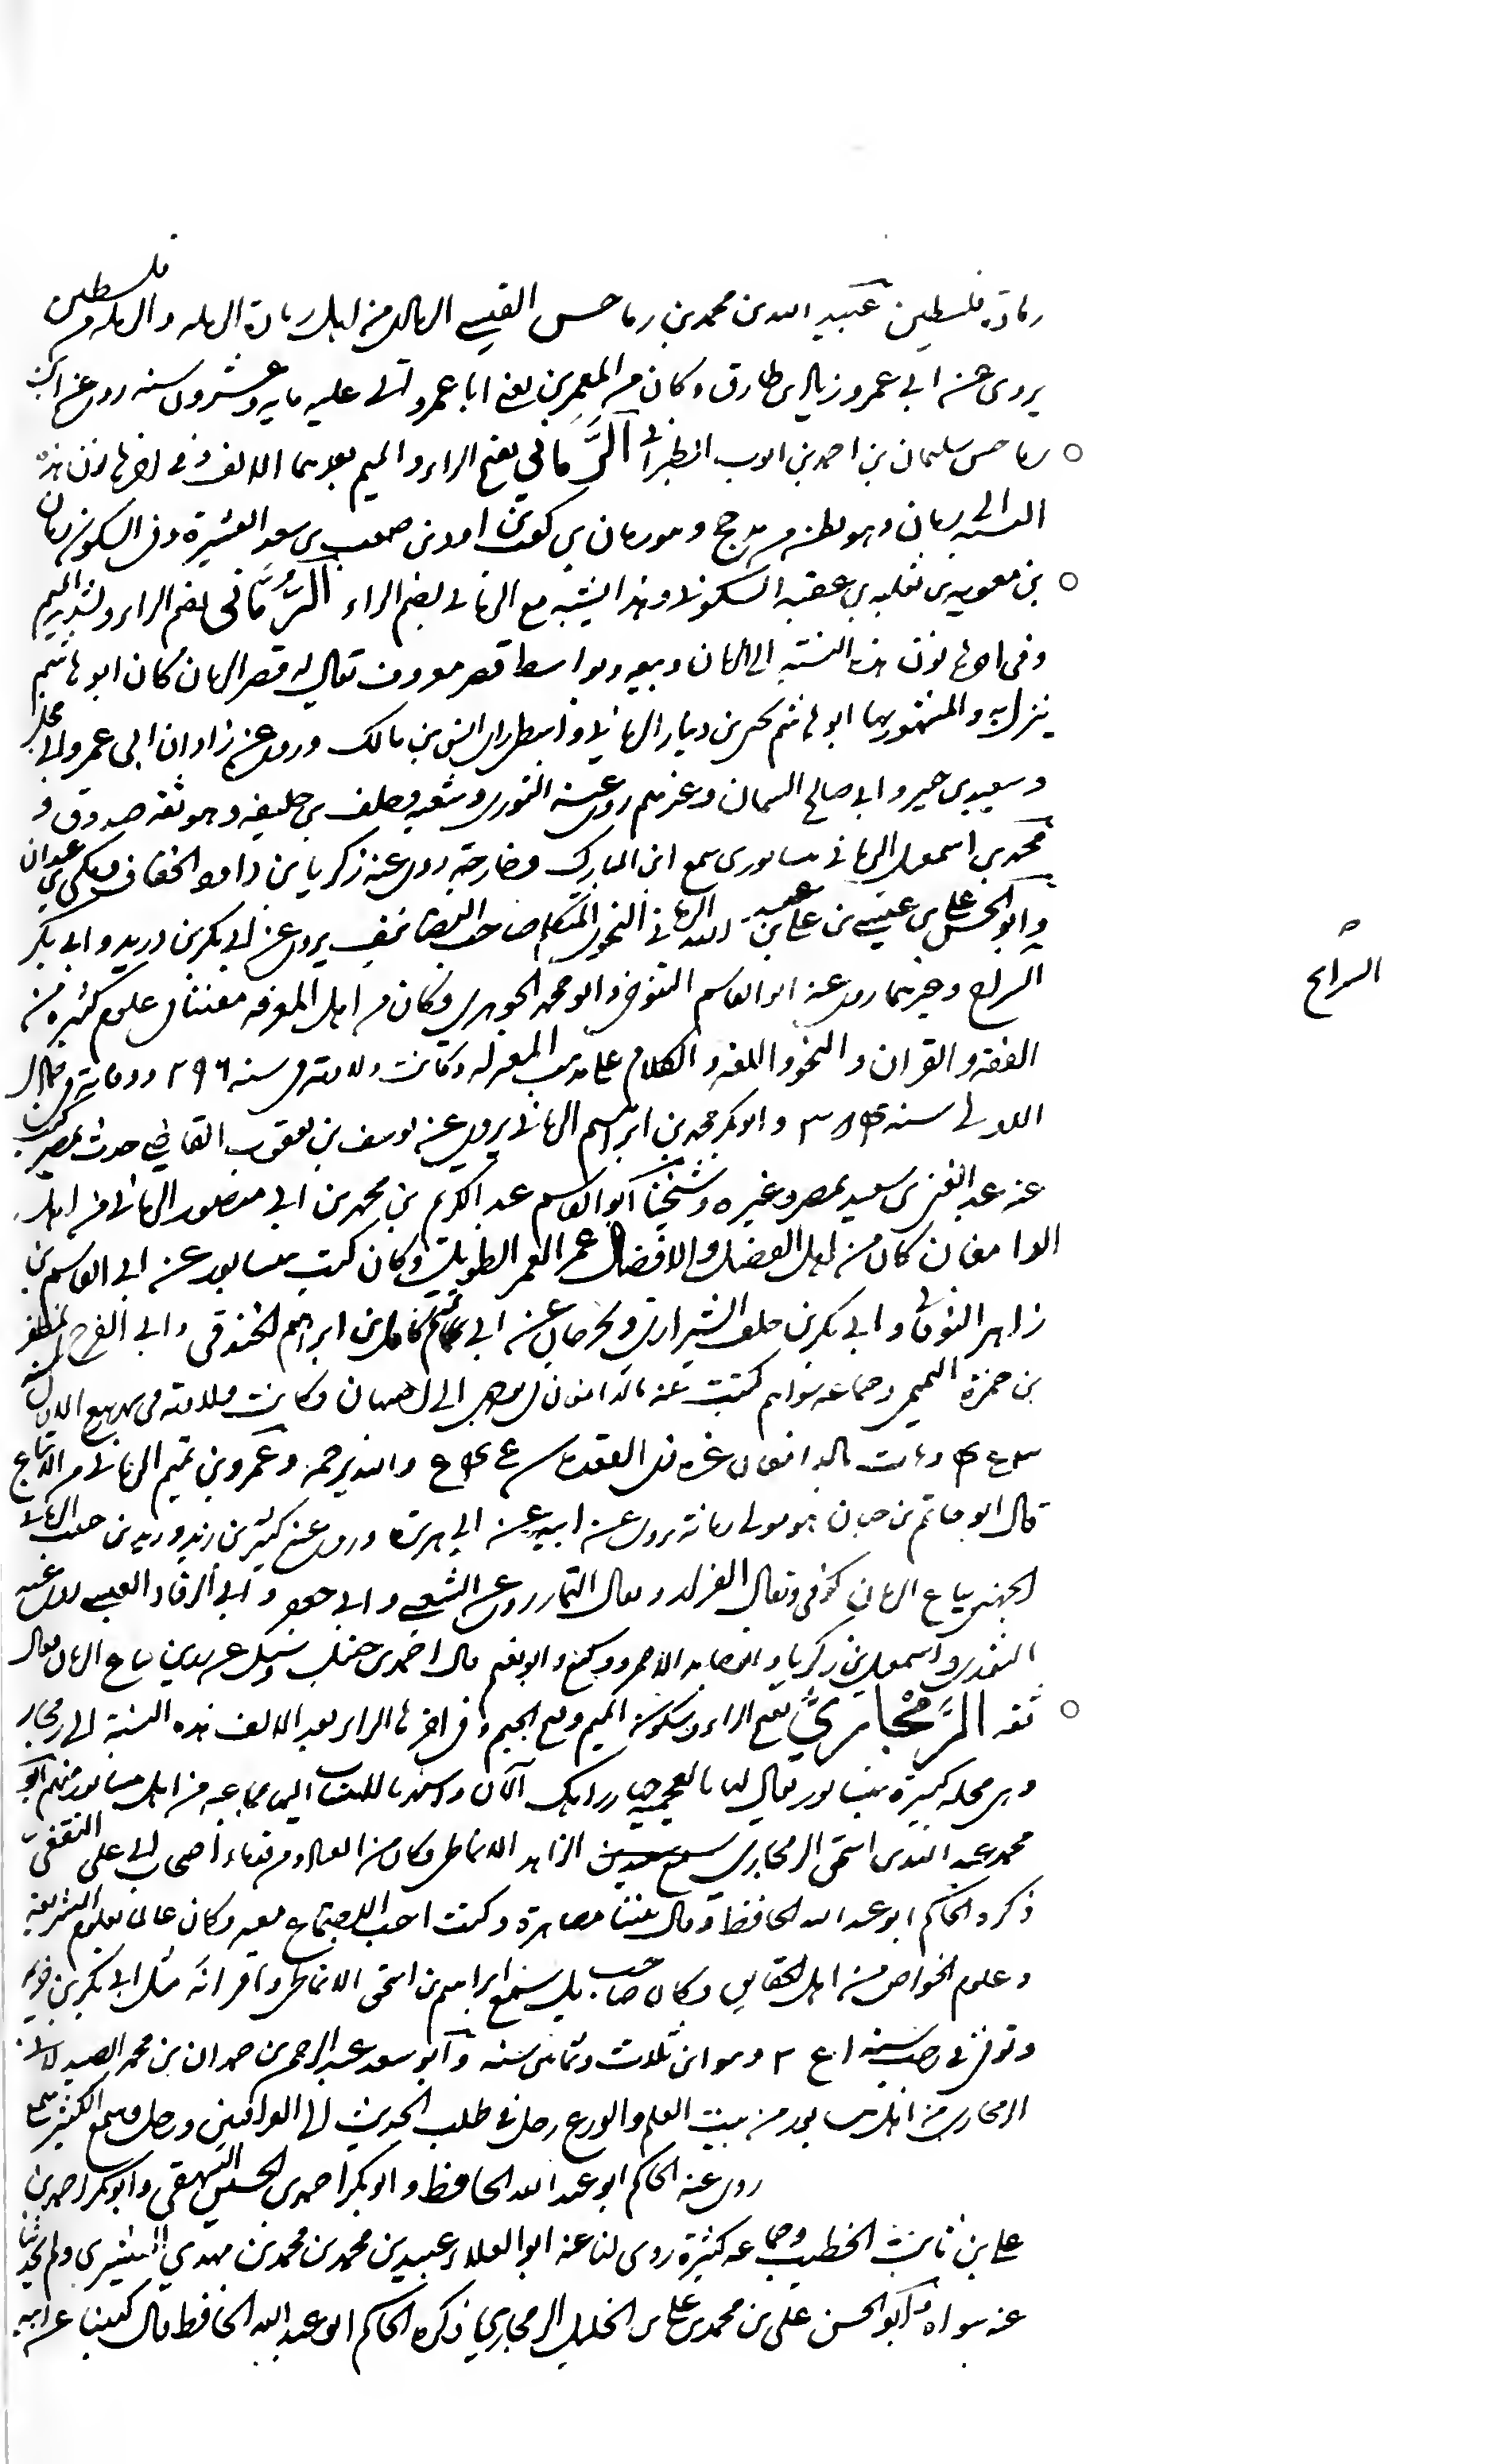 رمادة فلسطين عبيد الله بن محمد بن رماحس القيسي الرمادي من اهل رمادة الرمله والرملة من فلسطين
يروي عن ابي عمرو زياد بن طارق وكان من المعمرين يعني ابا عمرو اتى عليه مايه وعشرون سنه روى عن ابن
رماحس سليمان بن احمد بن ايوب الطبراني الرَّمَاني بفتح الراء والميم بعدهما الالف وفي اخرها نون هذه
النسبه الى رمان وهو بطن من مذحج وهو رمان بن كعب بن اود بن صعب بن سعد العشيرة وفي السكون رمان
بن معويه بن ثعلبه بن عقبه السكوني وهذا يشتبه مع الرماني بضم الراء الرُّمَّاني بضم الراء وتشديد الميم
وفي اخرها نون هذه النسبة الى الرمان وبيعه وبواسط قصر معروف يقال له قصر الرمان كان ابو هاشم
ينزل به والمشهور بها ابو هاشم يحيى بن دينار الرماني واسطي راى انس بن مالك وروى عن زاذان ابي عمر وابي مجلز
وسعيد بن جبير وابي صالح السمان وغيرهم روى عنه الثوري وشعبه وخلف بن خليفه وهو ثقه صدوق و
محمد بن اسمعيل الرماني نيسابوري سمع ابن المبارك وخارجة روى عنه زكريا بن داود الخفاف ومكي بن عبدان
وابو الحسن علي بن عيسى بن علي بن عبد الله الرماني النحوي المتكلم صاحب التصانيف يروي عن ابي بكر بن دريد وابي بكر
السراج وغيرهما روى عنه ابو القاسم التنوخي وابو محمد الجوهري وكان من اهل المعرفه مفتنا في علوم كثيره من
الفقه والقران والنحو واللغه والكلام على مذهب المعتزله وكانت ولادته في سنه ٢٩٦ ووفاته في جمادى
الاولى سنة ٣٨٤ وابو بكر محمد بن ابراهيم الرماني يروي عنه يوسف بن يعقوب القاضي حدث بمصر كتب
عنه عبد الغني بن سعيد بمصر وغيره وشيخنا ابو القاسم عبد الكريم بن محمد بن ابي منصور الرماني من اهل
الدامغان كان من اهل الفضل والافضال عمر العمر الطويل وكان كتب بنيسابور عن ابي القاسم بن
زاهر النوقاني وابي بكر بن خلف الشيرازي وبجرجان عن ابي تميم كامل بن ابراهيم الخندقي وابي الفرج المظفر
بن حمزة التميمي وجماعه سواهم كتبت عنه بالدامغان في توجهي الى اصبهان وكانت ولادته في ربيع الاول سنة
ومات بالدامغان غرة ذي القعدة سنة والله يرحمه وعمرو بن تميم الرماني من الاتباع
قال ابو حاتم بن حبان هو مولى رمانة يروي عن ابيه عن ابي هريرة وروى عنه كثير بن زيد وربيع بن خلف الرماني
الجهني بياع الرمان كوفي ويقال الفزاري ويقال التمار روى عن الشعبي وابي جعفر وابي الرقاد العبسي روى عنه
الثوري واسمعيل بن زكريا وابو خالد الاحمر ووكيع وابو نعيم قال احمد بن حنبل وسئل عن بياع الرمان فقال
ثقه الرَّمْجَاريّ بفتح الراء وسكون الميم وفتح الجيم وفي اخرها الراء بعد الالف هذه النسبة الى رمجار
وهي محله كبيرة بنيسابور يقال لها بالعجمية الان واشتهر بالانتساب اليها جماعه من اهل نيسابور منهم ابو
محمد عبد الله بن اسحق الرمجاري الزاهد الانماطي وكان من العباد ومن قدماء اصحاب ابي علي الثقفي
ذكره الحاكم ابو عبد الله الحافظ وقال بيننا مصاهرة وكنت احب الاجتماع معه وكان عالما بعلوم الشريعة
وعلوم الخواص من اهل الحقايق وكان صاحب سمع ابراهيم بن اسحق الانماطي واقرانه مثل ابي بكر بن خزيمه
وتوفي في رجب سنه ٣٤١ وهو ابن ثلاث وثمانين سنه وابو سعد عبد الرحمن بن حمدان بن محمد الصيدلاني
الرمجاري من اهل نيسابور من بيت العلم والورع رحل في طلب الحديث الى العراقين ورحل وسمع الكثير سمع
روى عنه الحاكم ابو عبد الله الحافظ وابو بكر احمد بن الحسين البيهقي وابو بكر احمد بن
علي بن ثابت الخطيب وجماعه كثيرة روى لنا عنه ابو العلاء عبيد بن محمد بن محمد بن مهدي القشيري ولم يحدثنا
عنه سواه وابو الحسن علي بن محمد بن علي بن الخليل الرمجاري ذكره الحاكم ابو عبد الله الحافظ وقال كتبنا عن ابيه
السراج